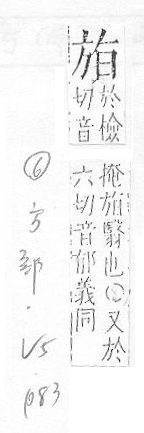 於檢
切音
掩翳也②又於
六切音郁義同
⑥方部·V5·p83